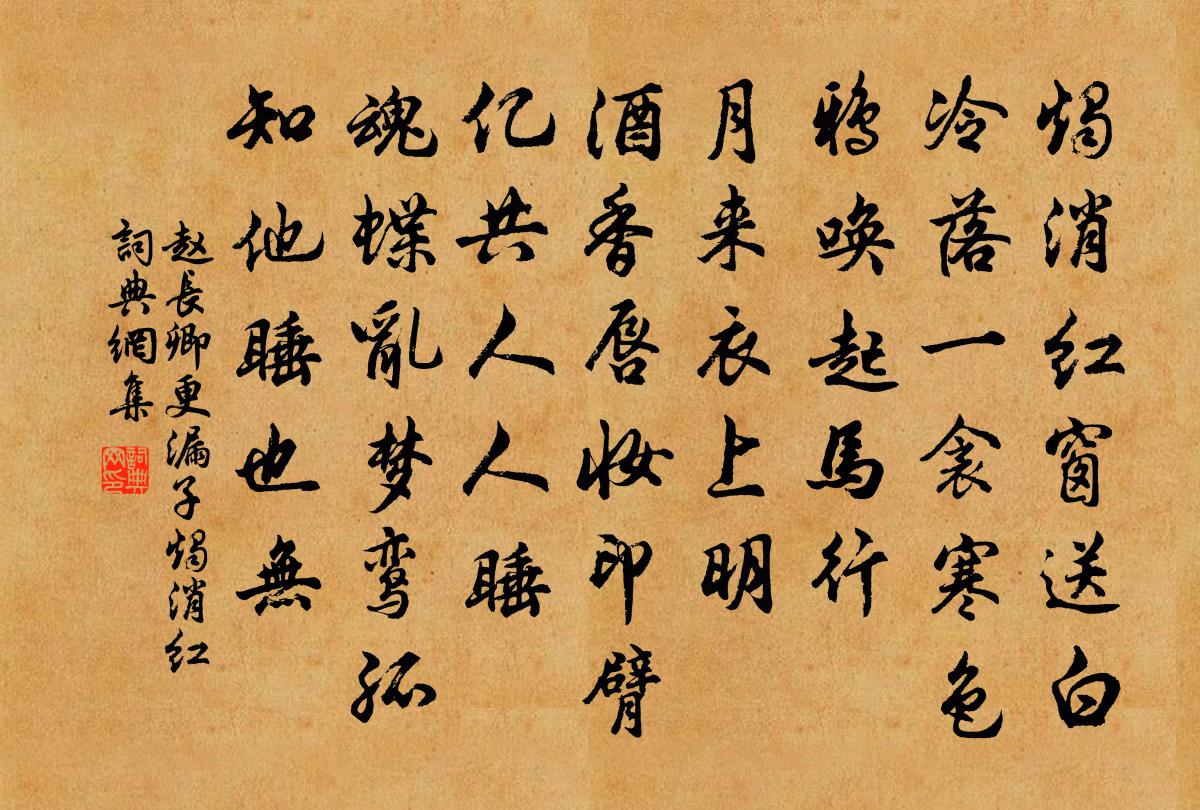 燭消红窗送白
冷落一衾寒色
鸦唤起馬行
月来衣上明
酒香唇妆印臂
亿共人人睡
魂蝶亂梦鸾孤
知他睡也無
赵長卿更漏子燭消红
詞典網集
詞典网印